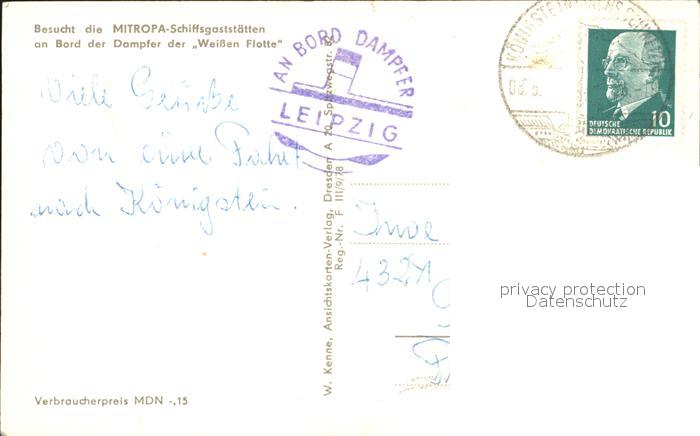 Besucht die MITROPA-Schiffsgaststätten
an Bord der Dampfer der „Weißen Flotte"
Viele Grüße
von eine Fahrt
nach Königstein.
Verbraucherpreis MDN -,15
AN BORD DAMPFER
LEIPZIG
W. Kenne, Ansichtskarten-Verlag, Dresden A 20, Spitzwegstr.
Reg.-Nr. F III/9/78
KÖNIGSTEIN
DEUTSCHE
DEMOKRATISCHE REPUBLIK
10
432
privacy protection
Datenschutz